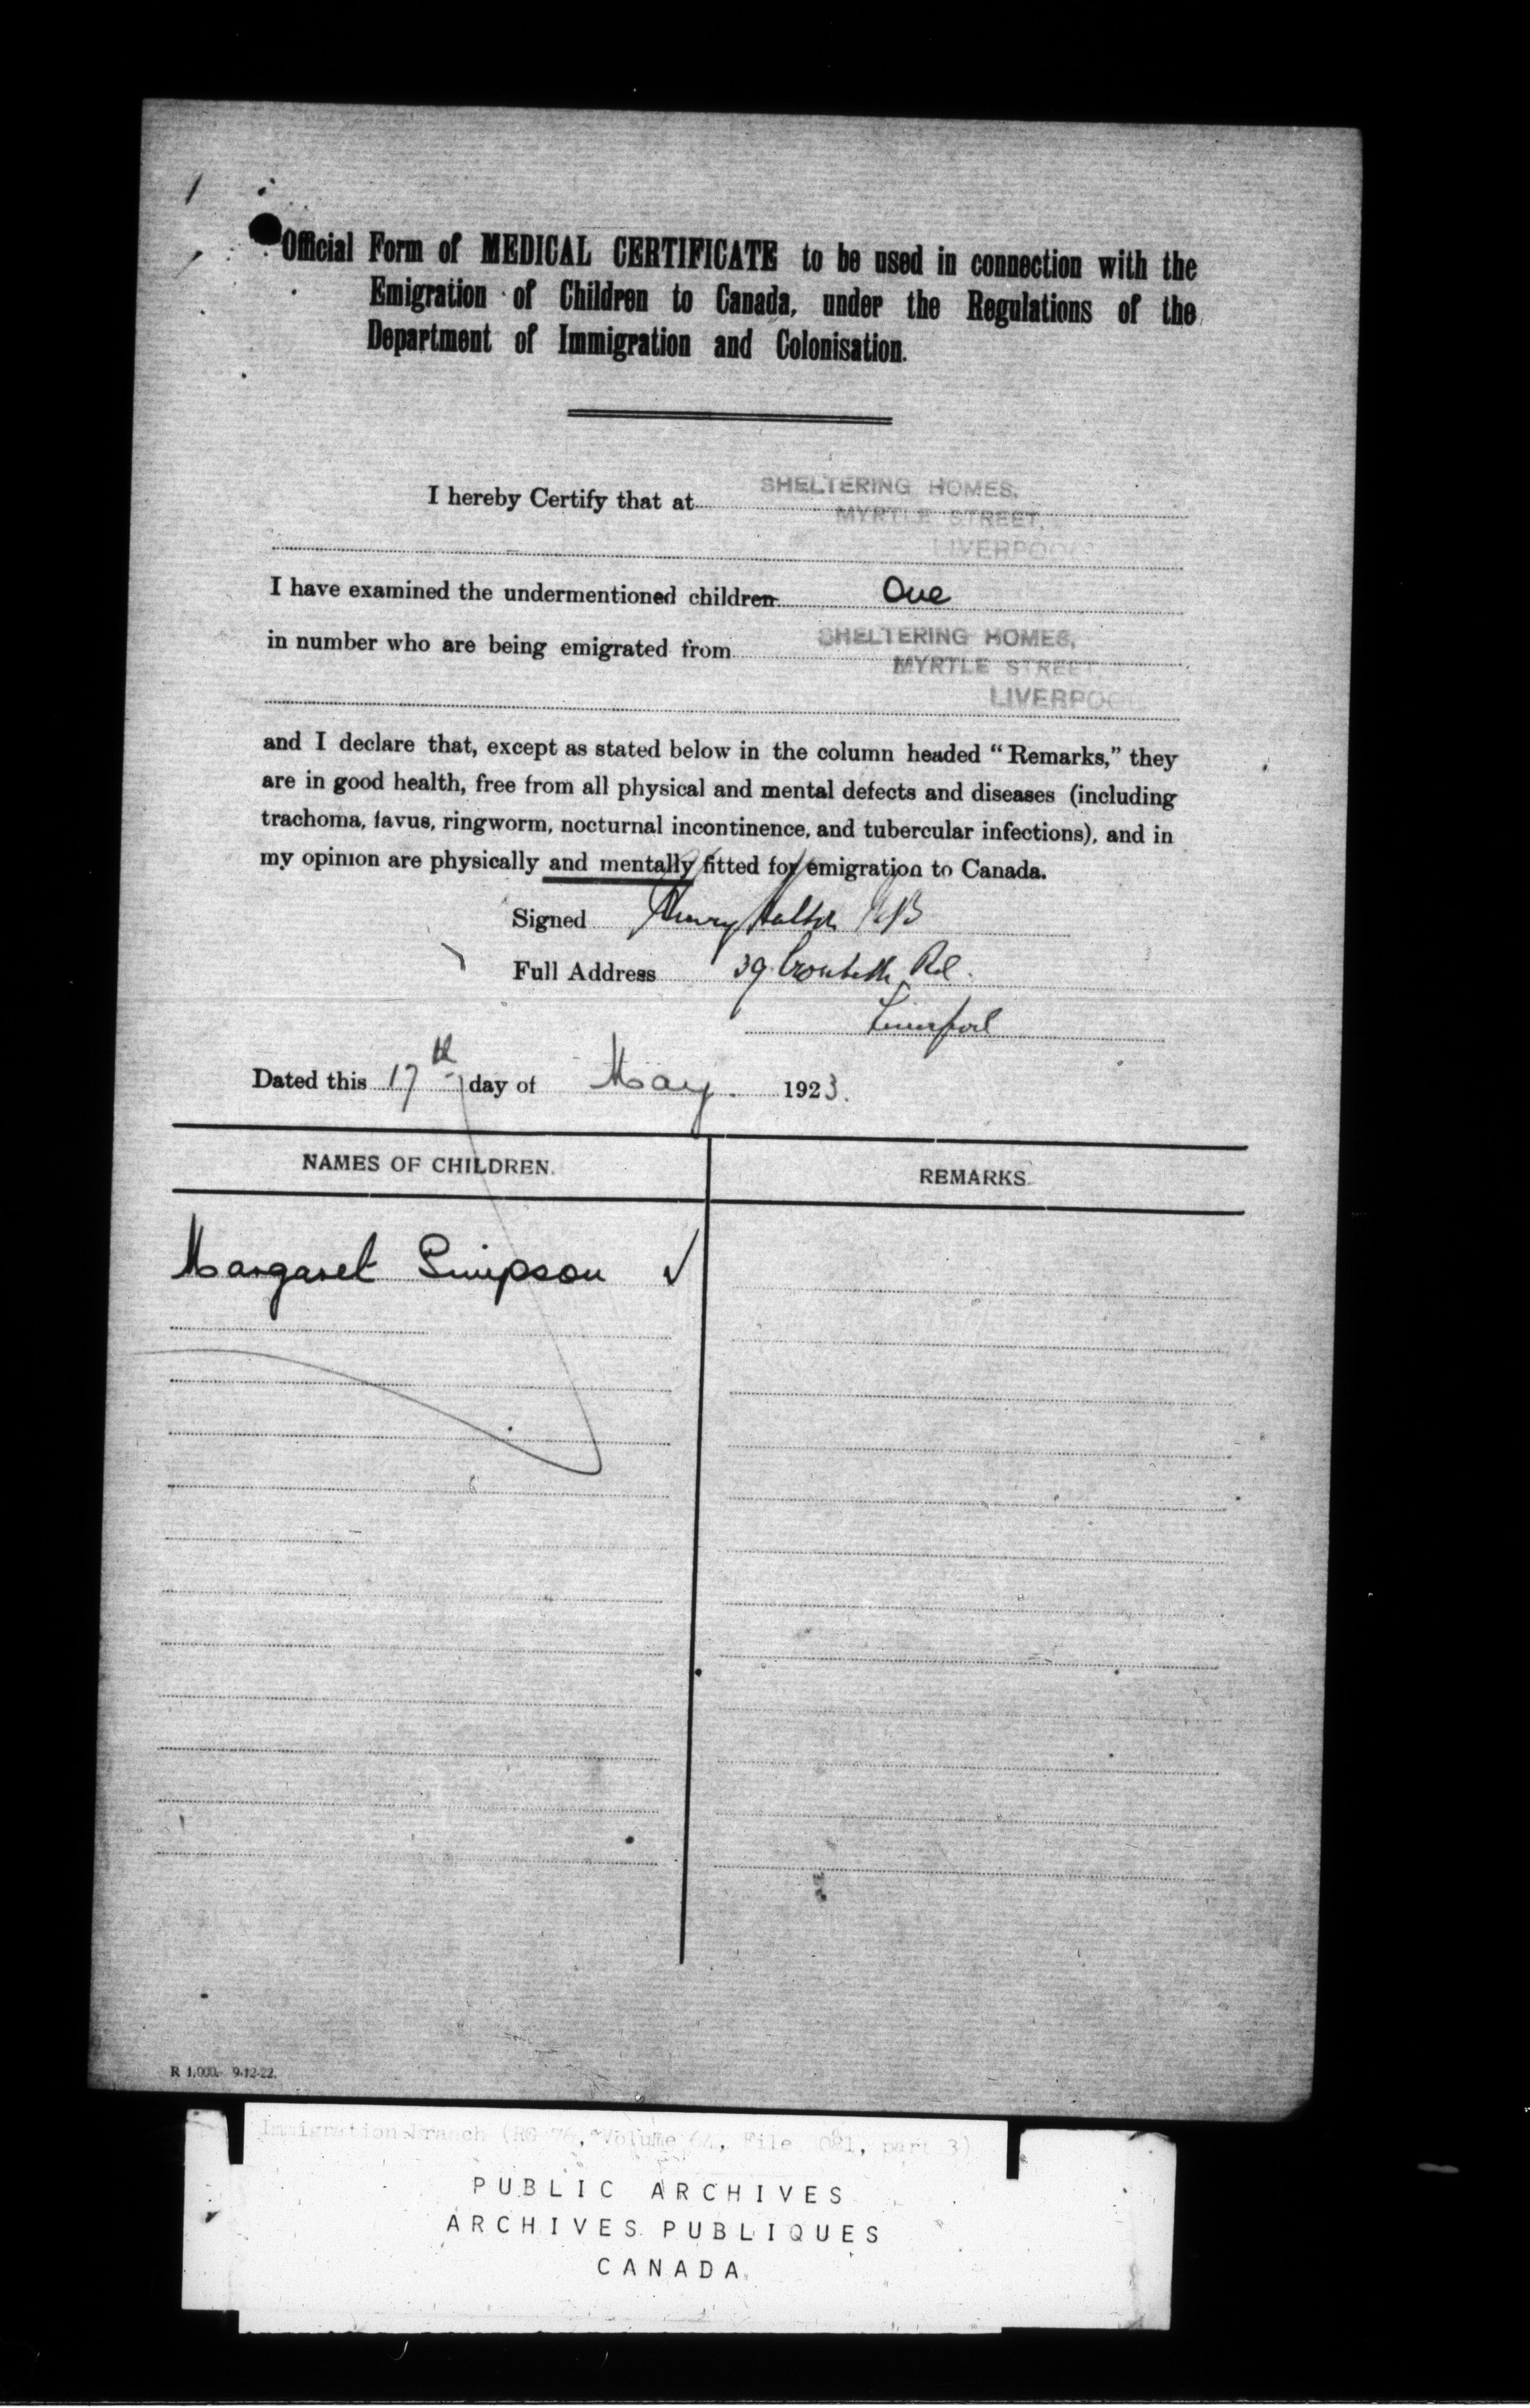 Official Form of MEDICAL CERTIFICATE to be used in connection with the
Emigration of Children to Canada, under the Regulations of the
Department of Immigration and Colonisation.
I hereby Certify that at SHELTERING HOMES,
MYRTLE STREET,
LIVERPOO
I have examined the undermentioned children One
in number who are being emigrated from SHELTERING HOMES,
MYRTLE STREET
LIVERPOO
and I declare that, except as stated below in the column headed “Remarks,” they
are in good health, free from all physical and mental defects and diseases (including
trachoma, favus, ringworm, nocturnal incontinence, and tubercular infections), and in
my opinion are physically and mentally fitted for emigration to Canada.
Signed Henry
Full Address 39 Rd.
Liverpool
Dated this 17th day of May. 1923.
NAMES OF CHILDREN.
REMARKS.
Margaret Simpson ✓
R 1,000. 9-12-22.
Immigration Branch (RG 76, Volume 64, File 3081, part 3)
PUBLIC ARCHIVES
ARCHIVES PUBLIQUES
CANADA